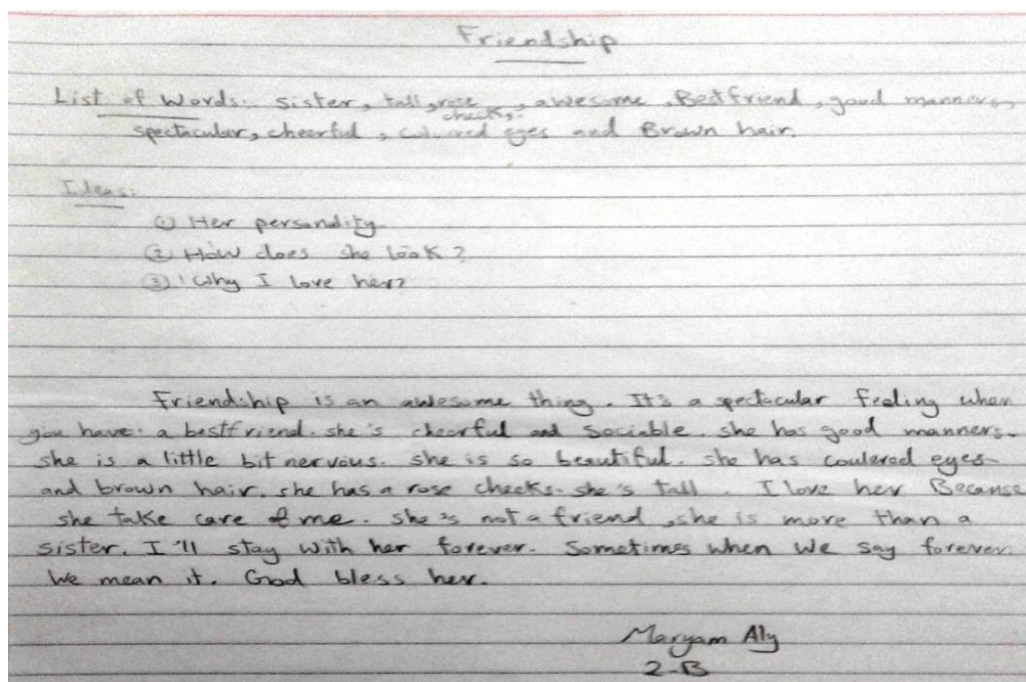 Friendship
List of Words: Sister, tall, rose cheeks, awesome, Bestfriend, good manners,
spectacular, cheerful, coloured eyes and Brown hair.
Ideas:
① Her personality.
② How does she look?
③ Why I love her?
Friendship is an awesome thing. It's a spectacular feeling when
you have a bestfriend. she's cheerful and sociable. she has good manners.
she is a little bit nervous. she is so beautiful. she has coulered eyes
and brown hair. she has a rose cheeks. she's tall. I love her Because
she take care of me. she's not a friend, she is more than a
sister. I'll stay with her forever. Sometimes when we say forever
We mean it. God bless her.
Maryam Aly
2-B